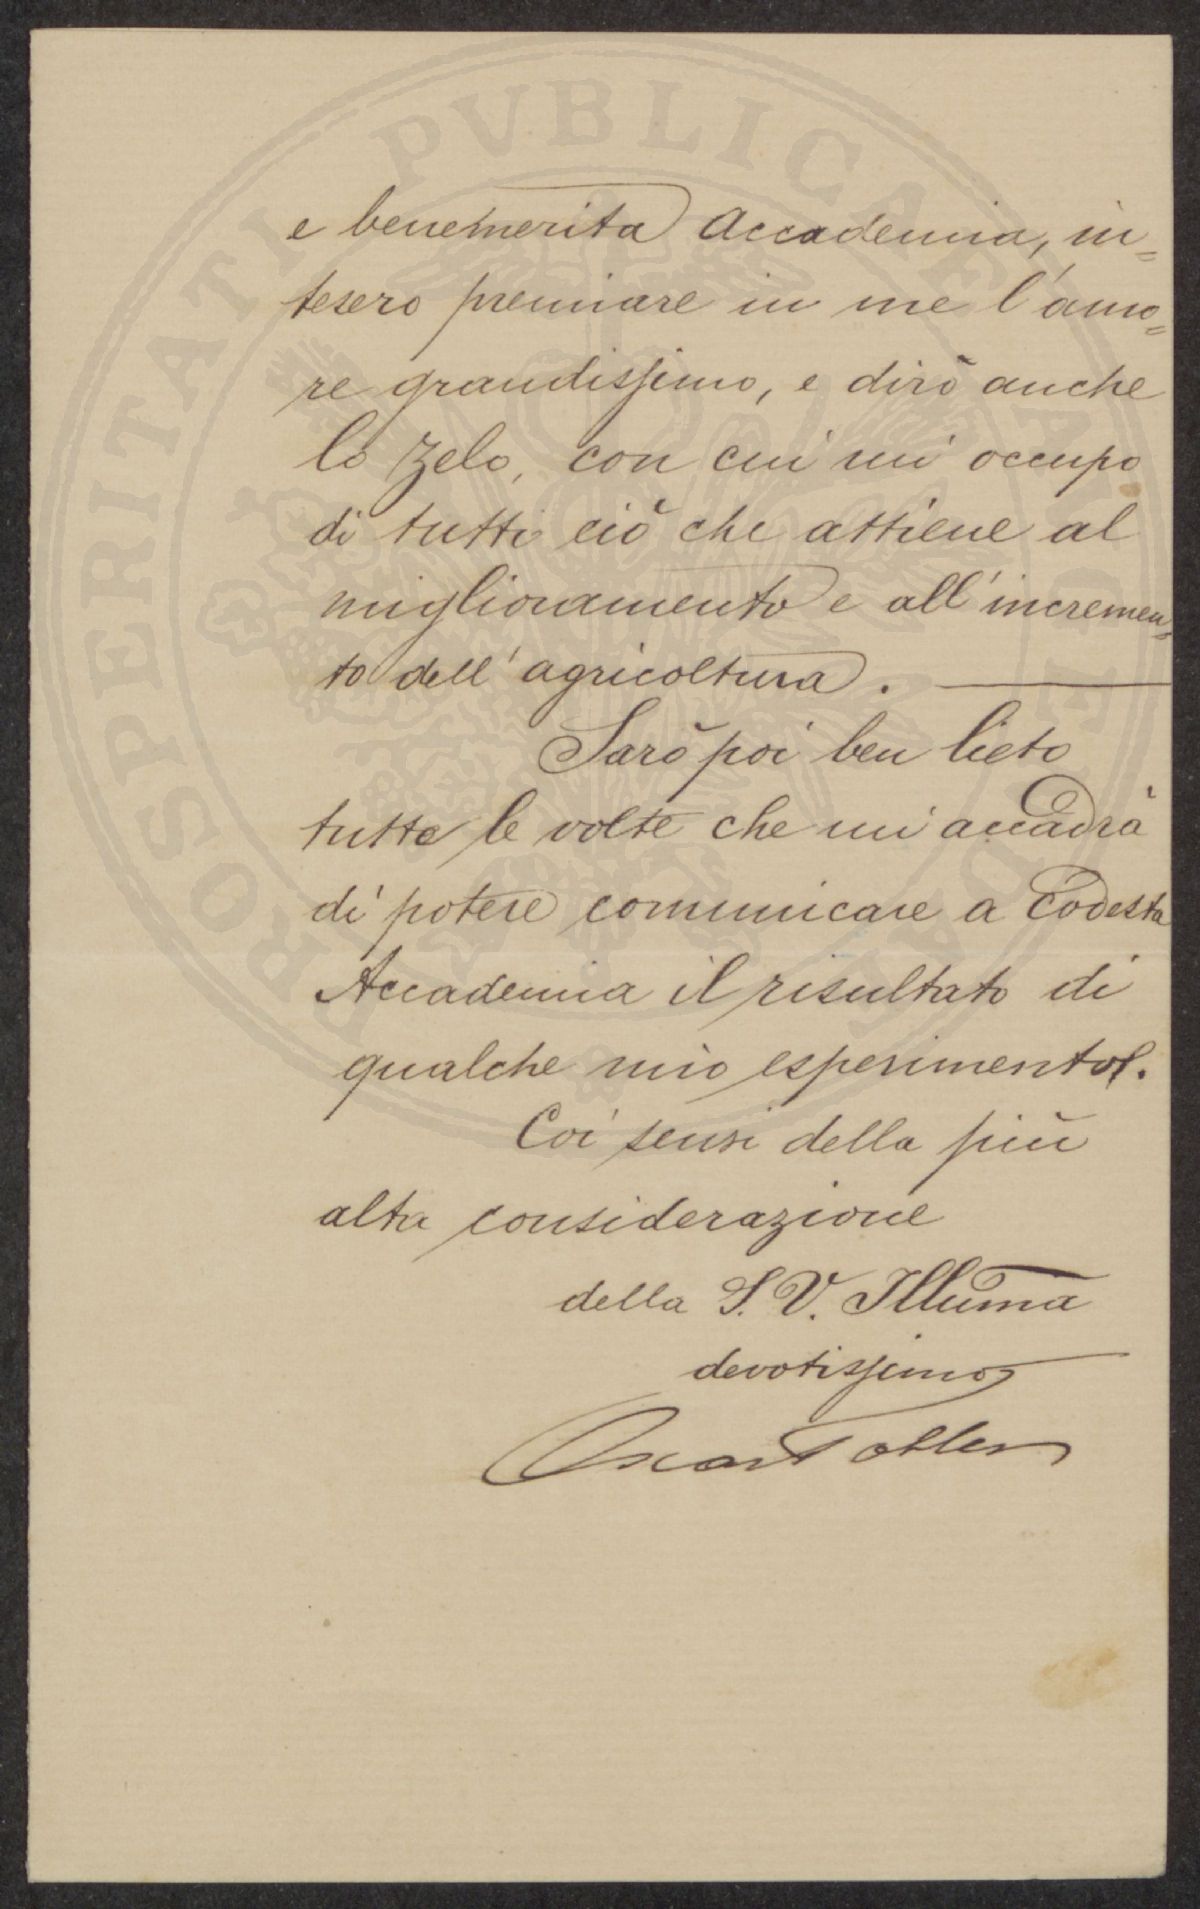 PROSPERITATI PVBLICAE AVGENDAE
e benemerita Accademia, in=
tesero premiare in me l'amo=
re grandissimo, e dirò anche
lo zelo, con cui mi occupo
di tutti ciò che attiene al
miglioramento e all'incremen=
to dell'agricoltura. —
Sarò poi ben lieto
tutte le volte che mi accadrà
di potere comunicare a Codesta
Accademia il risultato di
qualche mio esperimento.
Coi sensi della più
alta considerazione
della S. V. Illuma
devotissimo
Oscar Tobler